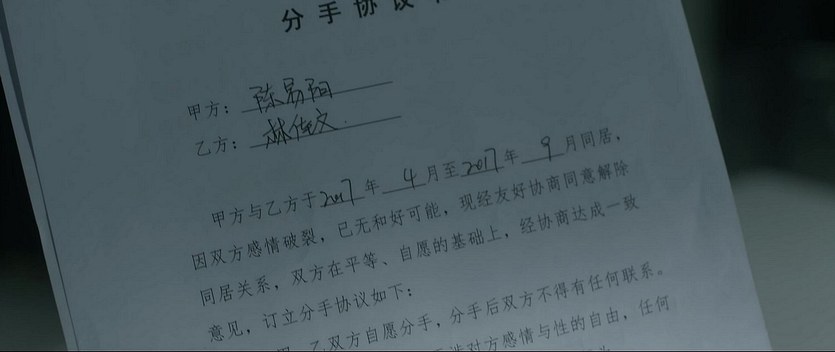 分手协议
甲方：陈易阳
乙方：林佳文
甲方与乙方于2017年 4月至2017年 9月同居，
因双方感情破裂，已无和好可能，现经友好协商同意解除
同居关系，双方在平等、自愿的基础上，经协商达成一致
意见，订立分手协议如下：
乙双方自愿分手，分手后双方不得有任何联系。
涉对方感情与性的自由，任何